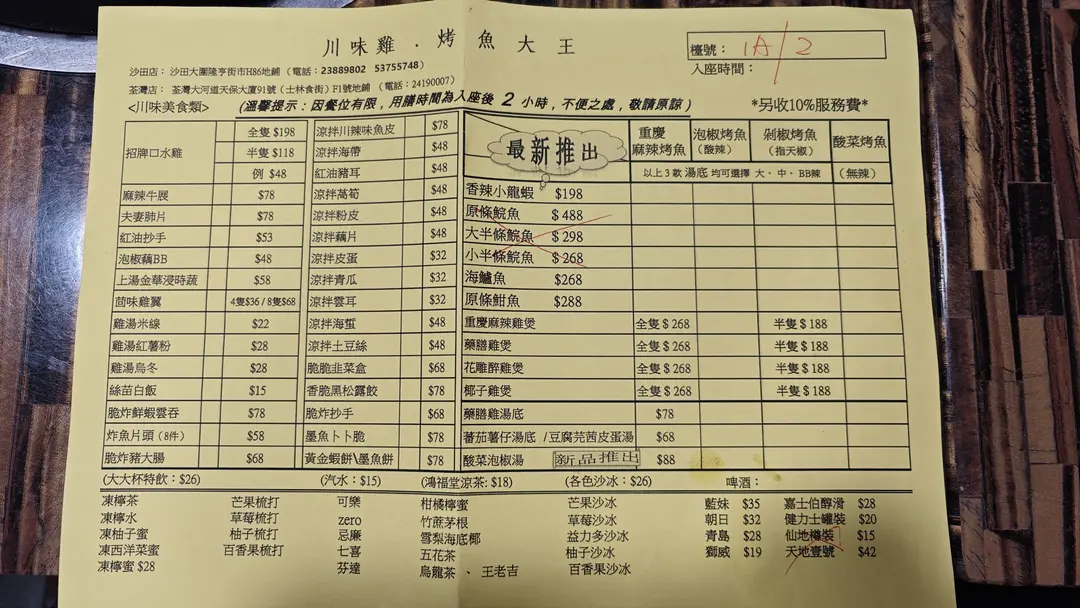 川味雞．烤魚大王
檯號： 1A/2
入座時間：
沙田店： 沙田大圍隆亨街市H86地鋪 （電話：23889802 53755748）
荃灣店： 荃灣大河道天保大廈91號（士林食街）F1號地鋪 （電話：24190007）
<川味美食類> (溫馨提示：因餐位有限，用膳時間為入座後 2 小時，不便之處，敬請原諒) *另收10%服務費*
招牌口水雞 全隻 $198
半隻 $118
例 $48
麻辣牛展 $78
夫妻肺片 $78
紅油抄手 $53
泡椒藕BB $48
上湯金華浸時蔬 $58
茴味雞翼 4隻$36 / 8隻$68
雞湯米線 $22
雞湯紅薯粉 $28
雞湯烏冬 $28
絲苗白飯 $15
脆炸鮮蝦雲吞 $78
炸魚片頭（8件） $58
脆炸豬大腸 $68
涼拌川辣味魚皮 $78
涼拌海帶 $48
紅油豬耳 $48
涼拌萵筍 $48
涼拌粉皮 $48
涼拌藕片 $48
涼拌皮蛋 $32
涼拌青瓜 $32
涼拌雲耳 $32
涼拌海蜇 $48
涼拌土豆絲 $48
脆脆韭菜盒 $68
香脆黑松露餃 $78
脆炸抄手 $68
墨魚卜卜脆 $78
黃金蝦餅\墨魚餅 $78
最新推出
重慶麻辣烤魚
泡椒烤魚（酸辣）
剁椒烤魚（指天椒）
酸菜烤魚
以上3款湯底 均可選擇 大、中、BB辣 （無辣）
香辣小龍蝦 $198
原條鯇魚 $ 488
大半條鯇魚 $ 298
小半條鯇魚 $ 268
海鱸魚 $268
原條鉗魚 $288
重慶麻辣雞煲 全隻 $ 268 半隻 $ 188
藥膳雞煲 全隻 $ 268 半隻 $ 188
花雕醉雞煲 全隻 $ 268 半隻 $ 188
椰子雞煲 全隻 $ 268 半隻 $ 188
藥膳雞湯底 $78
蕃茄薯仔湯底 /豆腐芫茜皮蛋湯 $68
酸菜泡椒湯 新品推出 $88
(大大杯特飲：$26) (汽水：$15) (鴻福堂涼茶: $18) (各色沙冰：$26) 啤酒：
凍檸茶 芒果梳打 可樂 柑橘檸蜜 芒果沙冰 藍妹 $35 嘉士伯醇滑 $28
凍檸水 草莓梳打 zero 竹蔗茅根 草莓沙冰 朝日 $32 健力士罐裝 $20
凍柚子蜜 柚子梳打 忌廉 雪梨海底椰 益力多沙冰 青島 $28 仙地樽裝 $15
凍西洋菜蜜 百香果梳打 七喜 五花茶 柚子沙冰 獅威 $19 天地壹號 $42
凍檸蜜 $28 芬達 烏龍茶 、 王老吉 百香果沙冰